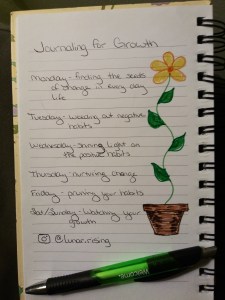 Journaling for Growth
Monday - Finding the seeds
of change in every day
life
Tuesday - weeding out negative
habits
Wednesday - shining light on
the positive habits
Thursday - nurturing change
Friday - pruning your habits
Sat/Sunday - Watching your
growth
@lunar.rising